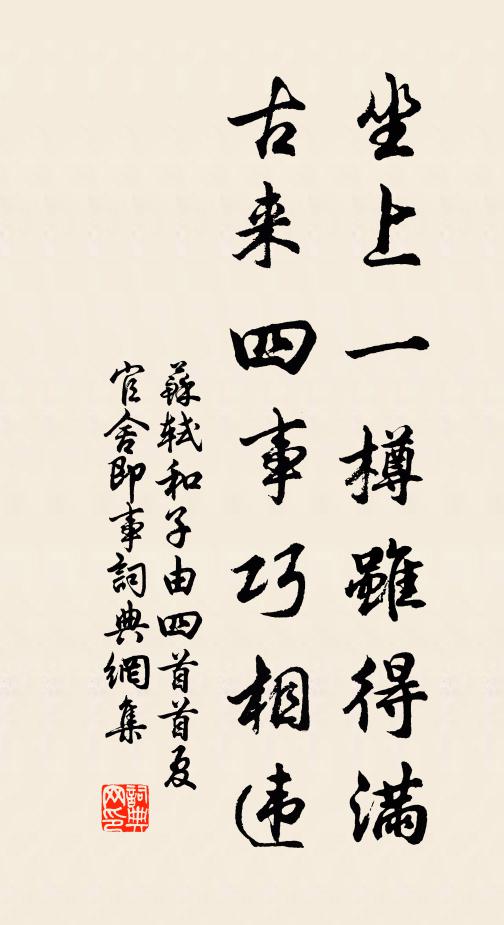 坐上一樽雖得滿
古来四事巧相违
蘇軾和子由四首首夏
官舍即事詞典網集
詞典网印